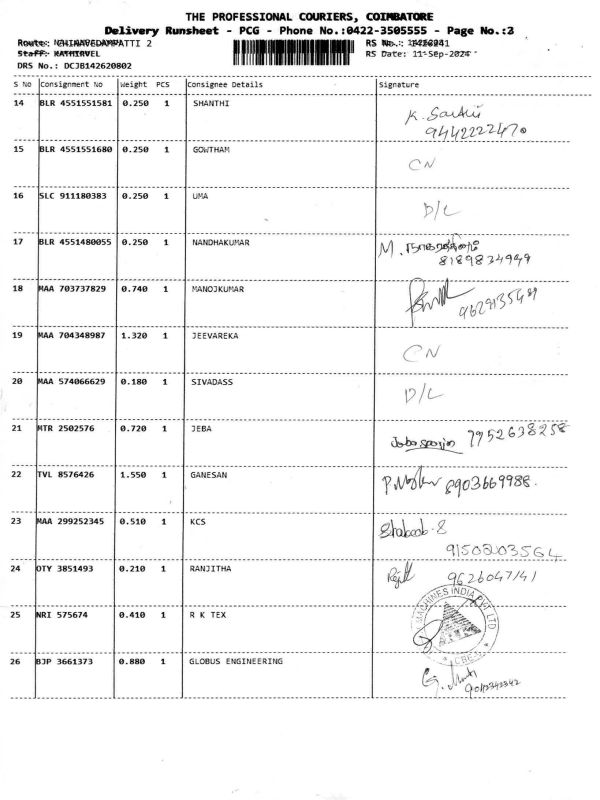 THE PROFESSIONAL COURIERS, COIMBATORE
Delivery Runsheet - PCG - Phone No.:0422-3505555 - Page No.:3
Route: ICHINAVEDAMPATTI 2
Staff: KATHIRVEL
DRS No.: DCJB142620802
RS No.:
RS Date: 11-Sep-2024
S No Consignment No Weight PCS Consignee Details Signature
14 BLR 4551551581 0.250 1 SHANTHI K.
9442222470
15 BLR 4551551680 0.250 1 GOWTHAM CN
16 SLC 911180383 0.250 1 UMA D/L
17 BLR 4551480055 0.250 1 NANDHAKUMAR M.
8189834949
18 MAA 703737829 0.740 1 MANOJKUMAR
19 MAA 704348987 1.320 1 JEEVAREKA CN
20 MAA 574066629 0.180 1 SIVADASS D/L
21 MTR 2502576 0.720 1 JEBA 7952638258
22 TVL 8576426 1.550 1 GANESAN 8903669988.
23 MAA 299252345 0.510 1 KCS
24 OTY 3851493 0.210 1 RANJITHA 9626047141
25 NRI 575674 0.410 1 R K TEX MACHINES INDIA PVT LTD
26 BJP 3661373 0.880 1 GLOBUS ENGINEERING